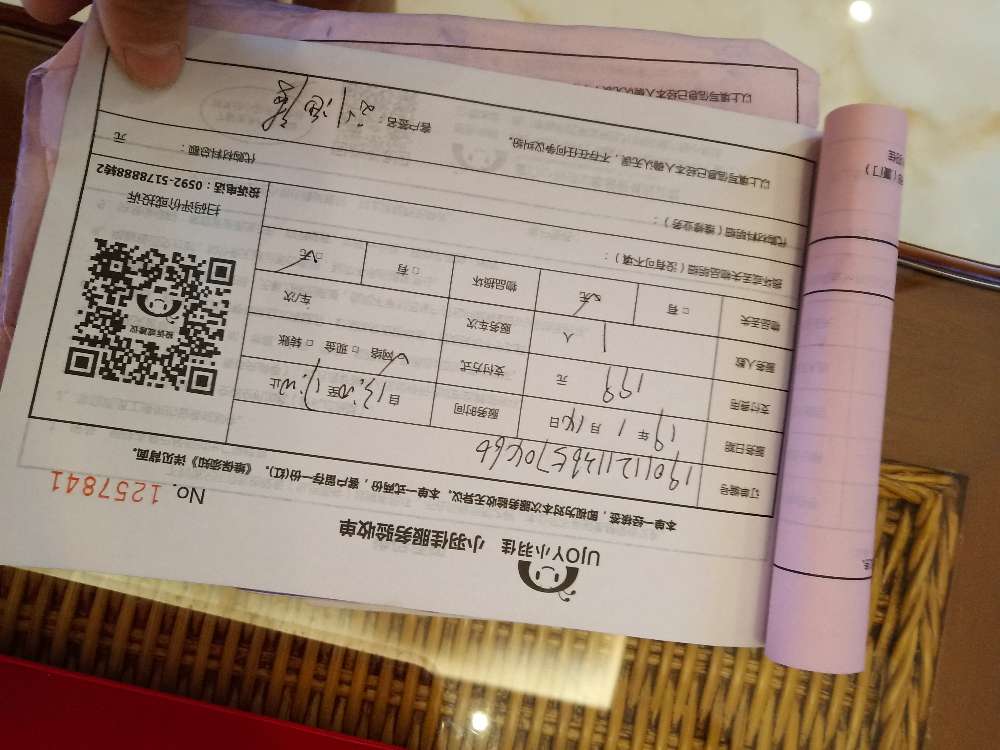 UJOY小羽佳 小羽佳服务验收单
No. 1257841
本单一经核签，即视为对本次服务验收无异议。本单一式两份，客户留存一份(红)。《维保须知》详见背面。
订单编号
服务日期 19年 1月 14日 服务时间
支付费用 199 元 支付方式 网络 □ 现金 □ 转账
服务人数 1 人 服务车次 车/次
物品丢失 □ 有 □ 无 物品损坏 □ 有 □ 无
损坏或丢失物品明细（没有可不填）：
代购材料明细（维修业务）：
代购材料总额： 元
投诉或建议
扫码评价或投诉
投诉电话：0592-5178888转2
以上填写信息已经本人确认无误，不存在任何争议纠纷。
客户签名：